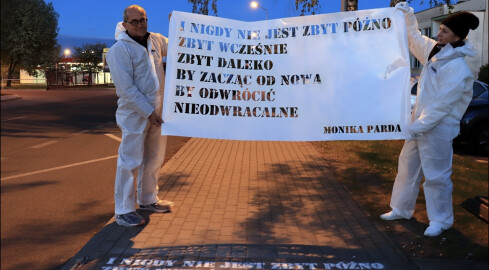 I NIGDY NIE JEST ZBYT PÓŹNO
ZBYT WCZEŚNIE
ZBYT DALEKO
BY ZACZĄĆ OD NOWA
BY ODWRÓCIĆ
NIEODWRACALNE
MONIKA PARDA
I NIGDY NIE JEST ZBYT PÓŹNO